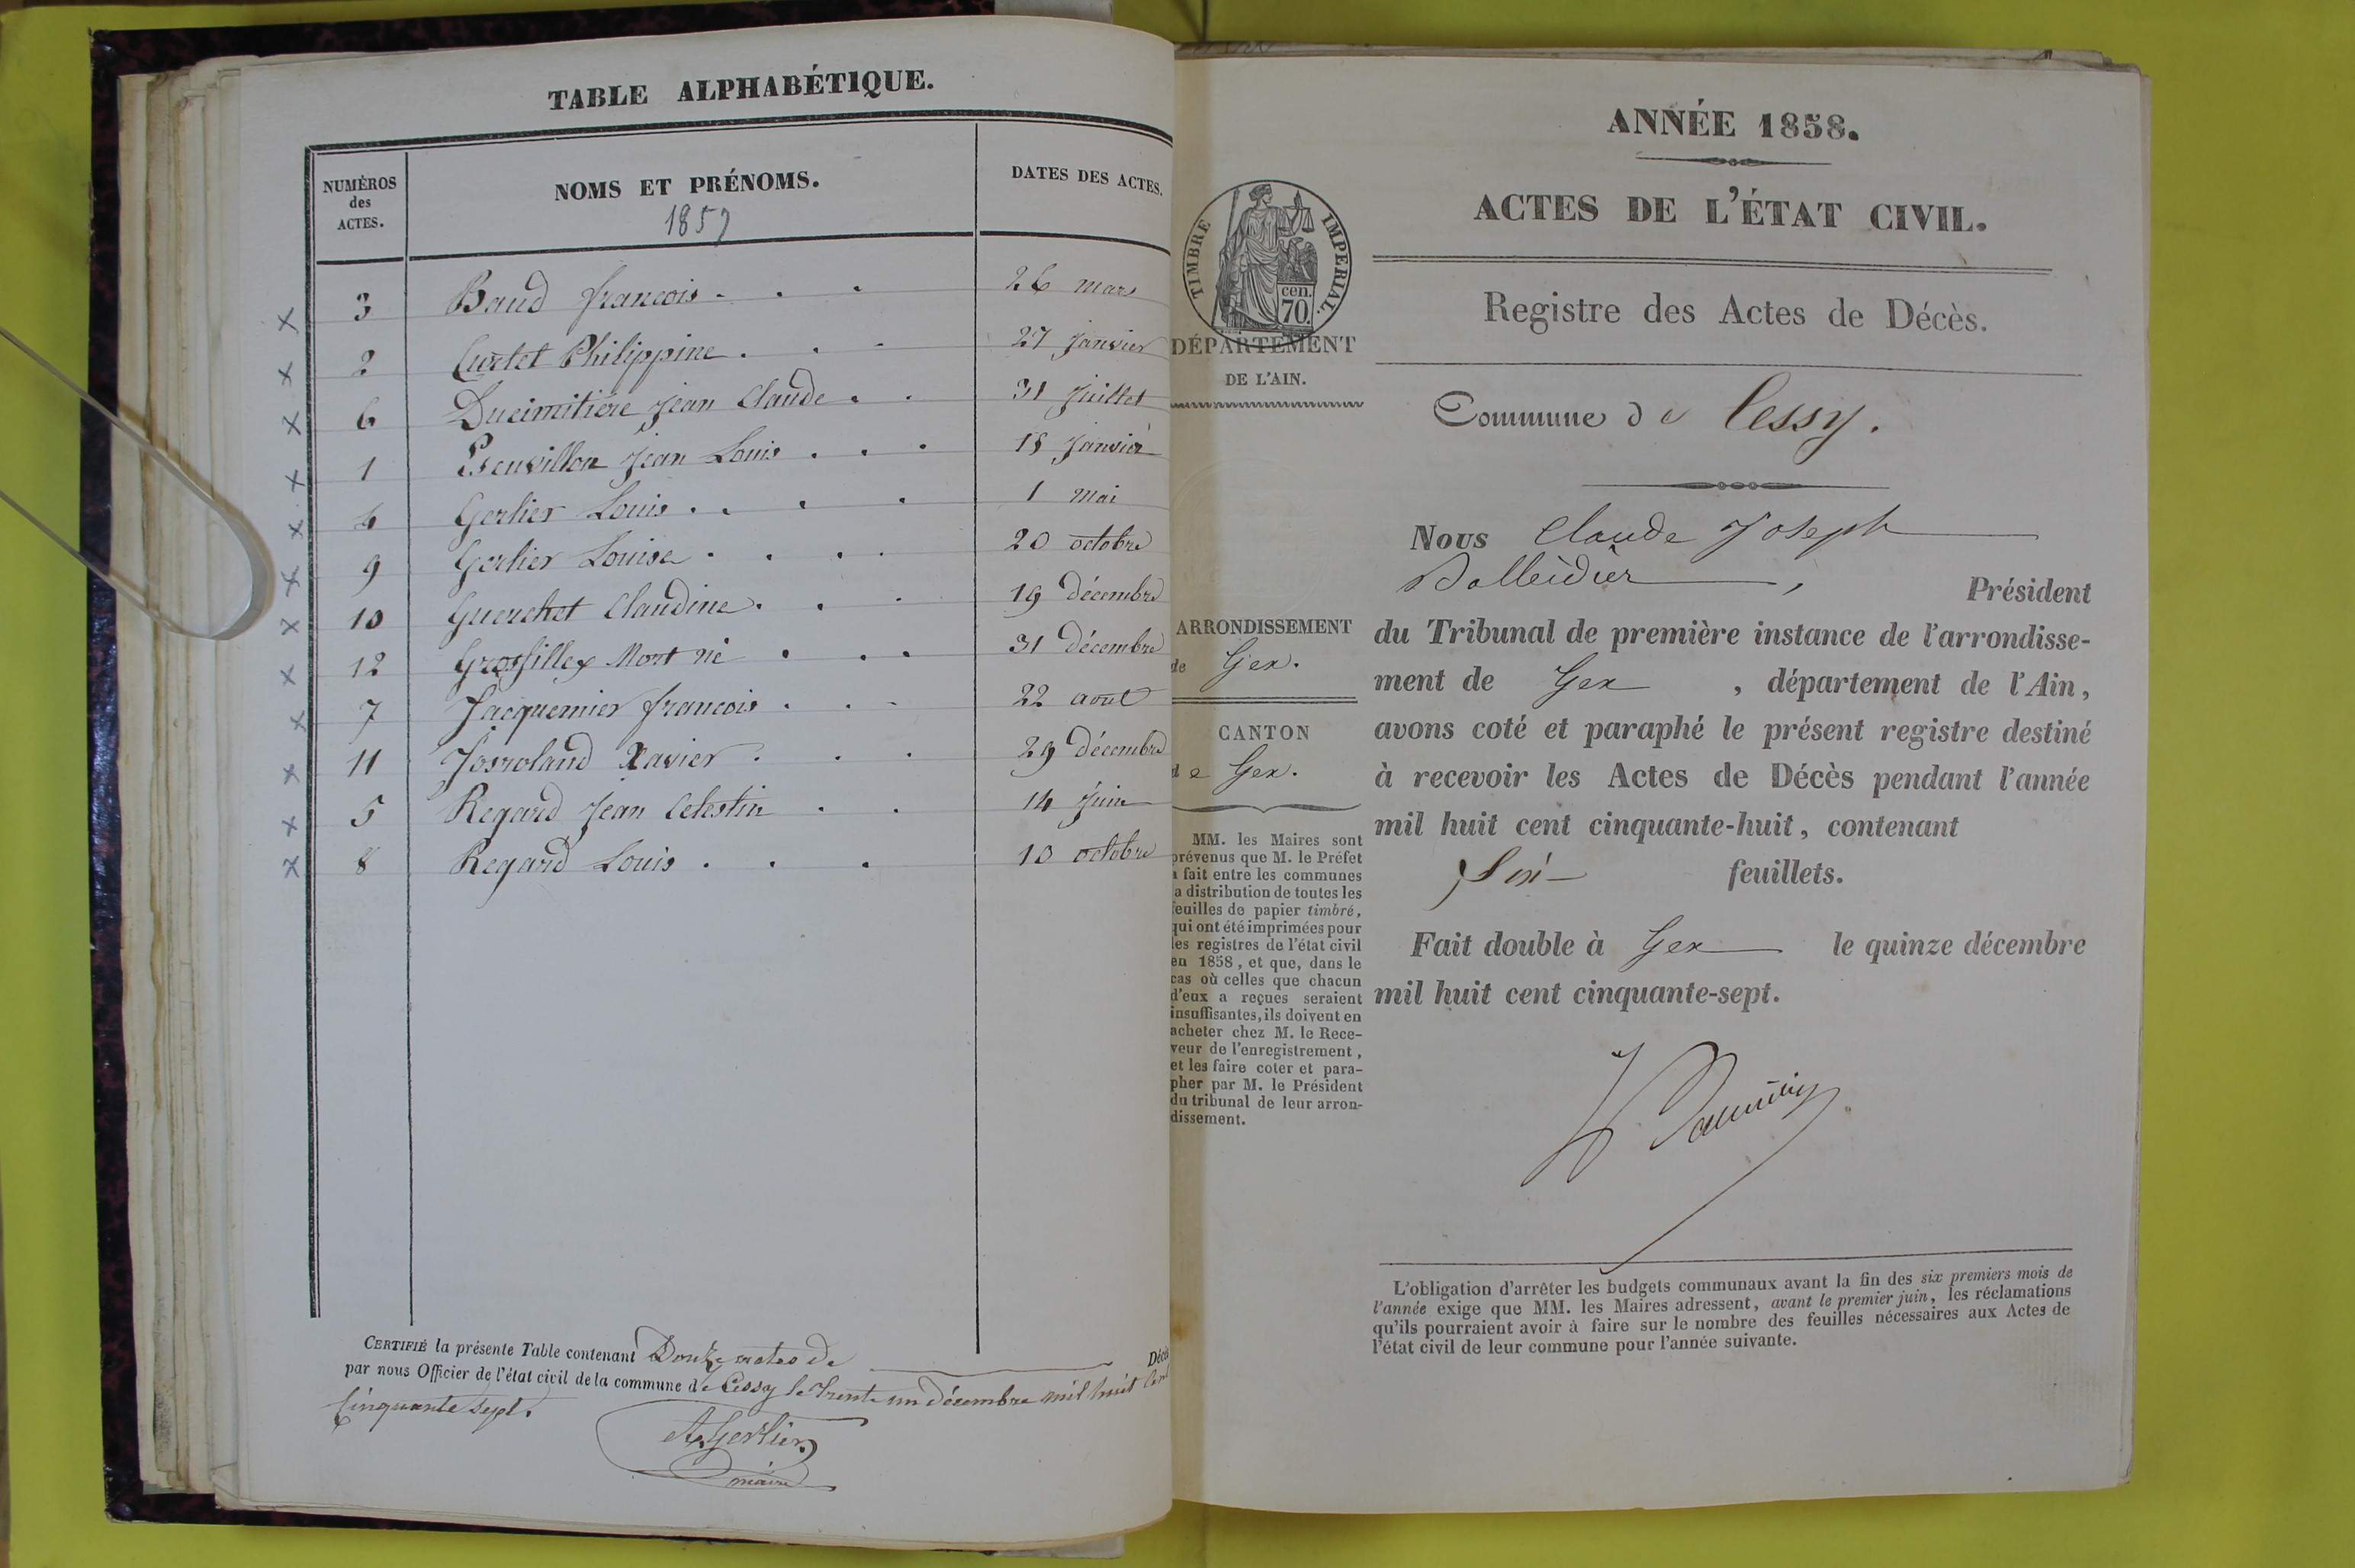 TABLE ALPHABÉTIQUE.
NUMÉROS des ACTES. NOMS ET PRÉNOMS. DATES DES ACTES.
1857
3 Baud francois 26 mars
2 Curtet Philippine 27 janvier
6 Ducimitière jean Claude 31 juillet
1 jean Louis 15 janvier
4 Gerlier Louis 1 mai
9 Gerlier Louise 20 octobre
10 Guerchet Claudine 19 décembre
12 Grosfillex Mort né 31 décembre
7 Jacquemier francois 22 aout
11 Josroland Xavier 29 décembre
5 Regard jean Celestin 14 juin
8 Regard Louis 10 octobre
CERTIFIÉ la présente Table contenant Douze actes de Décès
par nous Officier de l'état civil de la commune de Cessy le trente un décembre mil huit Cent
Cinquante sept.
A Gerlier
maire
TIMBRE IMPERIAL.
cen.
70.
DÉPARTEMENT
DE L'AIN.
ARRONDISSEMENT
de Gex.
CANTON
de Gex.
MM. les Maires sont
prévenus que M. le Préfet
a fait entre les communes
la distribution de toutes les
feuilles de papier timbré,
qui ont été imprimées pour
les registres de l'état civil
en 1858, et que, dans le
cas où celles que chacun
d'eux a reçues seraient
insuffisantes, ils doivent en
acheter chez M. le Rece-
veur de l'enregistrement,
et les faire coter et para-
pher par M. le Président
du tribunal de leur arron-
dissement.
ANNÉE 1858.
ACTES DE L'ÉTAT CIVIL.
Registre des Actes de Décès.
Commune de Cessy.
Nous Claude Joseph
Président
du Tribunal de première instance de l'arrondisse-
ment de Gex, département de l'Ain,
avons coté et paraphé le présent registre destiné
à recevoir les Actes de Décès pendant l'année
mil huit cent cinquante-huit, contenant
Six feuillets.
Fait double à Gex le quinze décembre
mil huit cent cinquante-sept.
L'obligation d'arrêter les budgets communaux avant la fin des six premiers mois de
l'année exige que MM. les Maires adressent, avant le premier juin, les réclamations
qu'ils pourraient avoir à faire sur le nombre des feuilles nécessaires aux Actes de
l'état civil de leur commune pour l'année suivante.